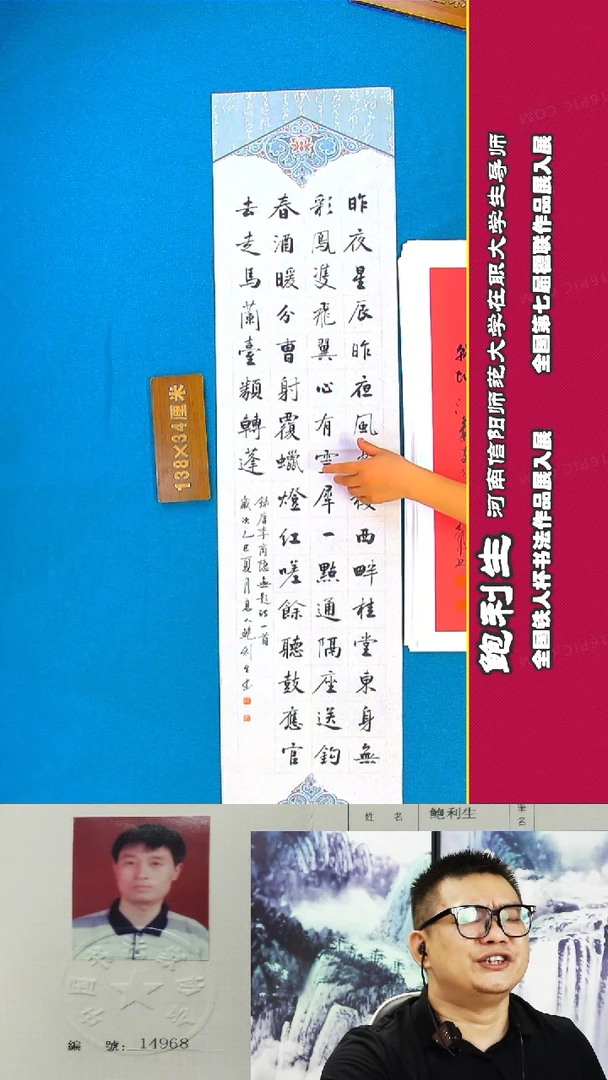 昨夜星辰昨夜風西畔桂堂東身無
彩鳳雙飛翼心有靈犀一點通隔座送鈎
春酒暖分曹射覆蠟燈紅嗟餘聽鼓應官
去走馬蘭臺類轉蓬
錄唐李商隱無題詩一首
歲次乙巳夏月息人鮑利生書
138×34厘米
鲍利生 河南信阳师范大学在职大学生导师
全国铁人杯书法作品展入展 全国第七届楹联作品展入展
姓 名 鲍利生
編 號: 14968